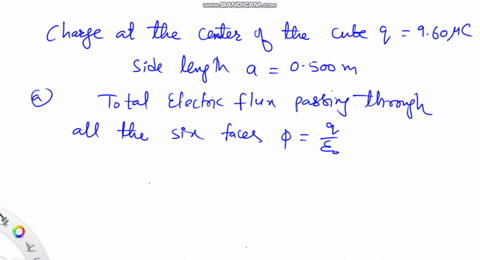 www.BANDICAM.com
Charge at the center of the cube q = 9.60 μC
side length a = 0.500 m
a) Total Electric flux passing through
all the six faces ϕ = q/ε₀